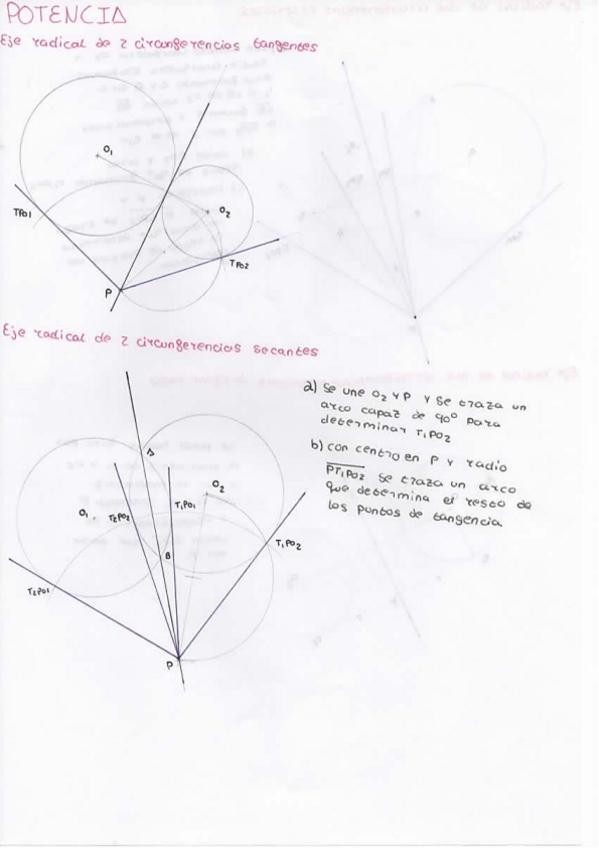 POTENCIA
Eje radical de 2 circungerencias tangentes
O1
O2
TPO1
TPO2
P
Eje radical de 2 circungerencias secantes
a) Se une O2 y P y se traza un
arco capaz de 90º para
determinar T1PO2
b) con centro en P y radio
PT1PO2 se traza un arco
que determina el resto de
los puntos de tangencia
A
O2
O1
T2PO2
T1PO1
B
T1PO2
T2PO1
P